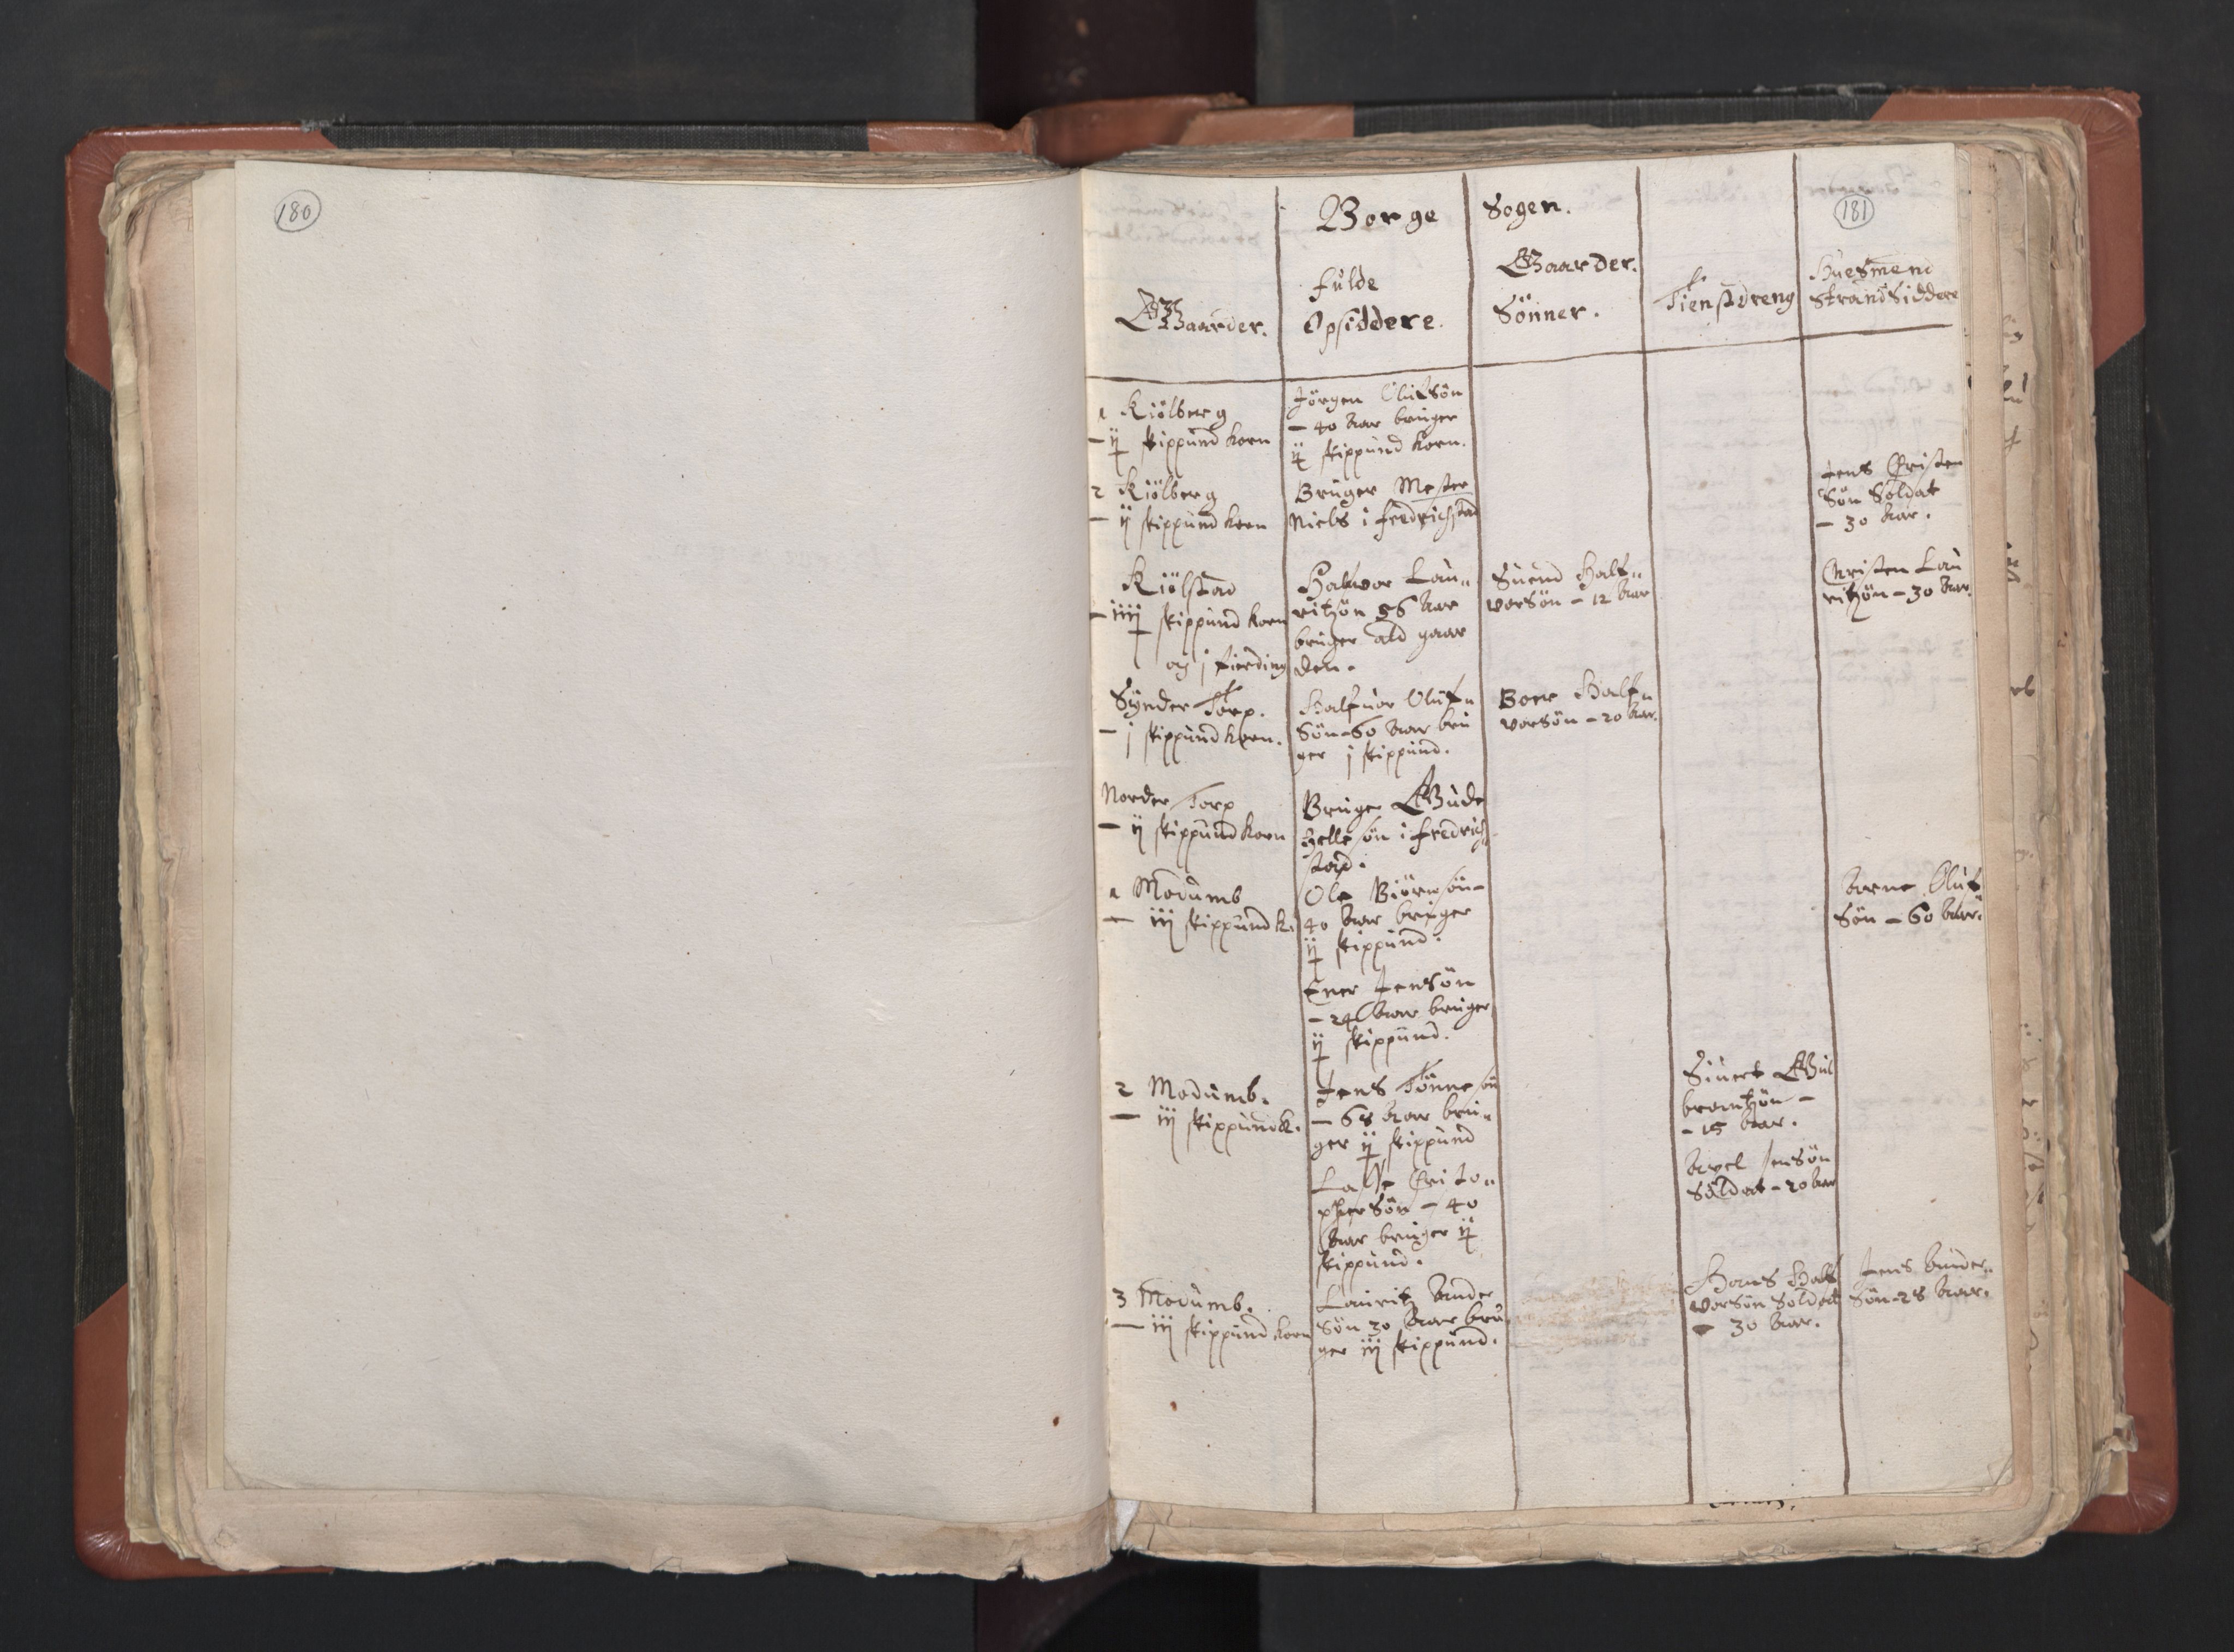 180
181
Borge Sogen.
Fulde Gaarder.
Gaarder. Opsiddere. Sönner. Tienstdreng Huesmend
StrandSiddere
1 Kiölberg
– ij skippund korn
Jörgen Olufsön
– 40 Aar bruger
ij skippund korn.
2 Kiölberg
– ij skippund korn
Bruger Mester
Niels i fredrichstad
Jens Christen
Sön Soldat
– 30 Aar.
Kiölstad
– iiij skippund korn
og j fierding
Halvor Lau„
ritzön 56 Aar
bruger ald gaar
den.
Suend Half„
vorSön – 12 Aar
Christen Lau
ritzön – 30 Aar.
Synder Torp.
– j skippund korn.
Halfuor Oluf„
Sön – 60 Aar bru
ger j skippund.
Bore Half„
vorSön – 20 Aar.
Norder Torp
– ij skippund korn
Bruger Gude
Helle sön i fredrich
stad.
1 Modumb
– iij skippund k.
Ole Biörnsön –
40 Aar bruger
ij skippund.
Arne Oluf
Sön – 60 Aar.
Ener Jensön
– 24 Aar bruger
ij skippund.
2 Modumb.
– iij skippund k.
Jens Tönnesön
– 68 Aar bru„
ger ij skippund
Siuert Gul
brantzön –
– 15 Aar.
Lasse Cristo„
pherSön – 40
Aar bruger ij
skippund.
Axel JenSön
Soldat – 20 Aar
3 Modumb.
– iij skippund korn
Lauritz Ander
Sön 30 Aar bru
ger iij skippund.
Hans Half
vorSön Soldat
– 30 Aar.
Jens Ander„
Sön – 28 Aar.